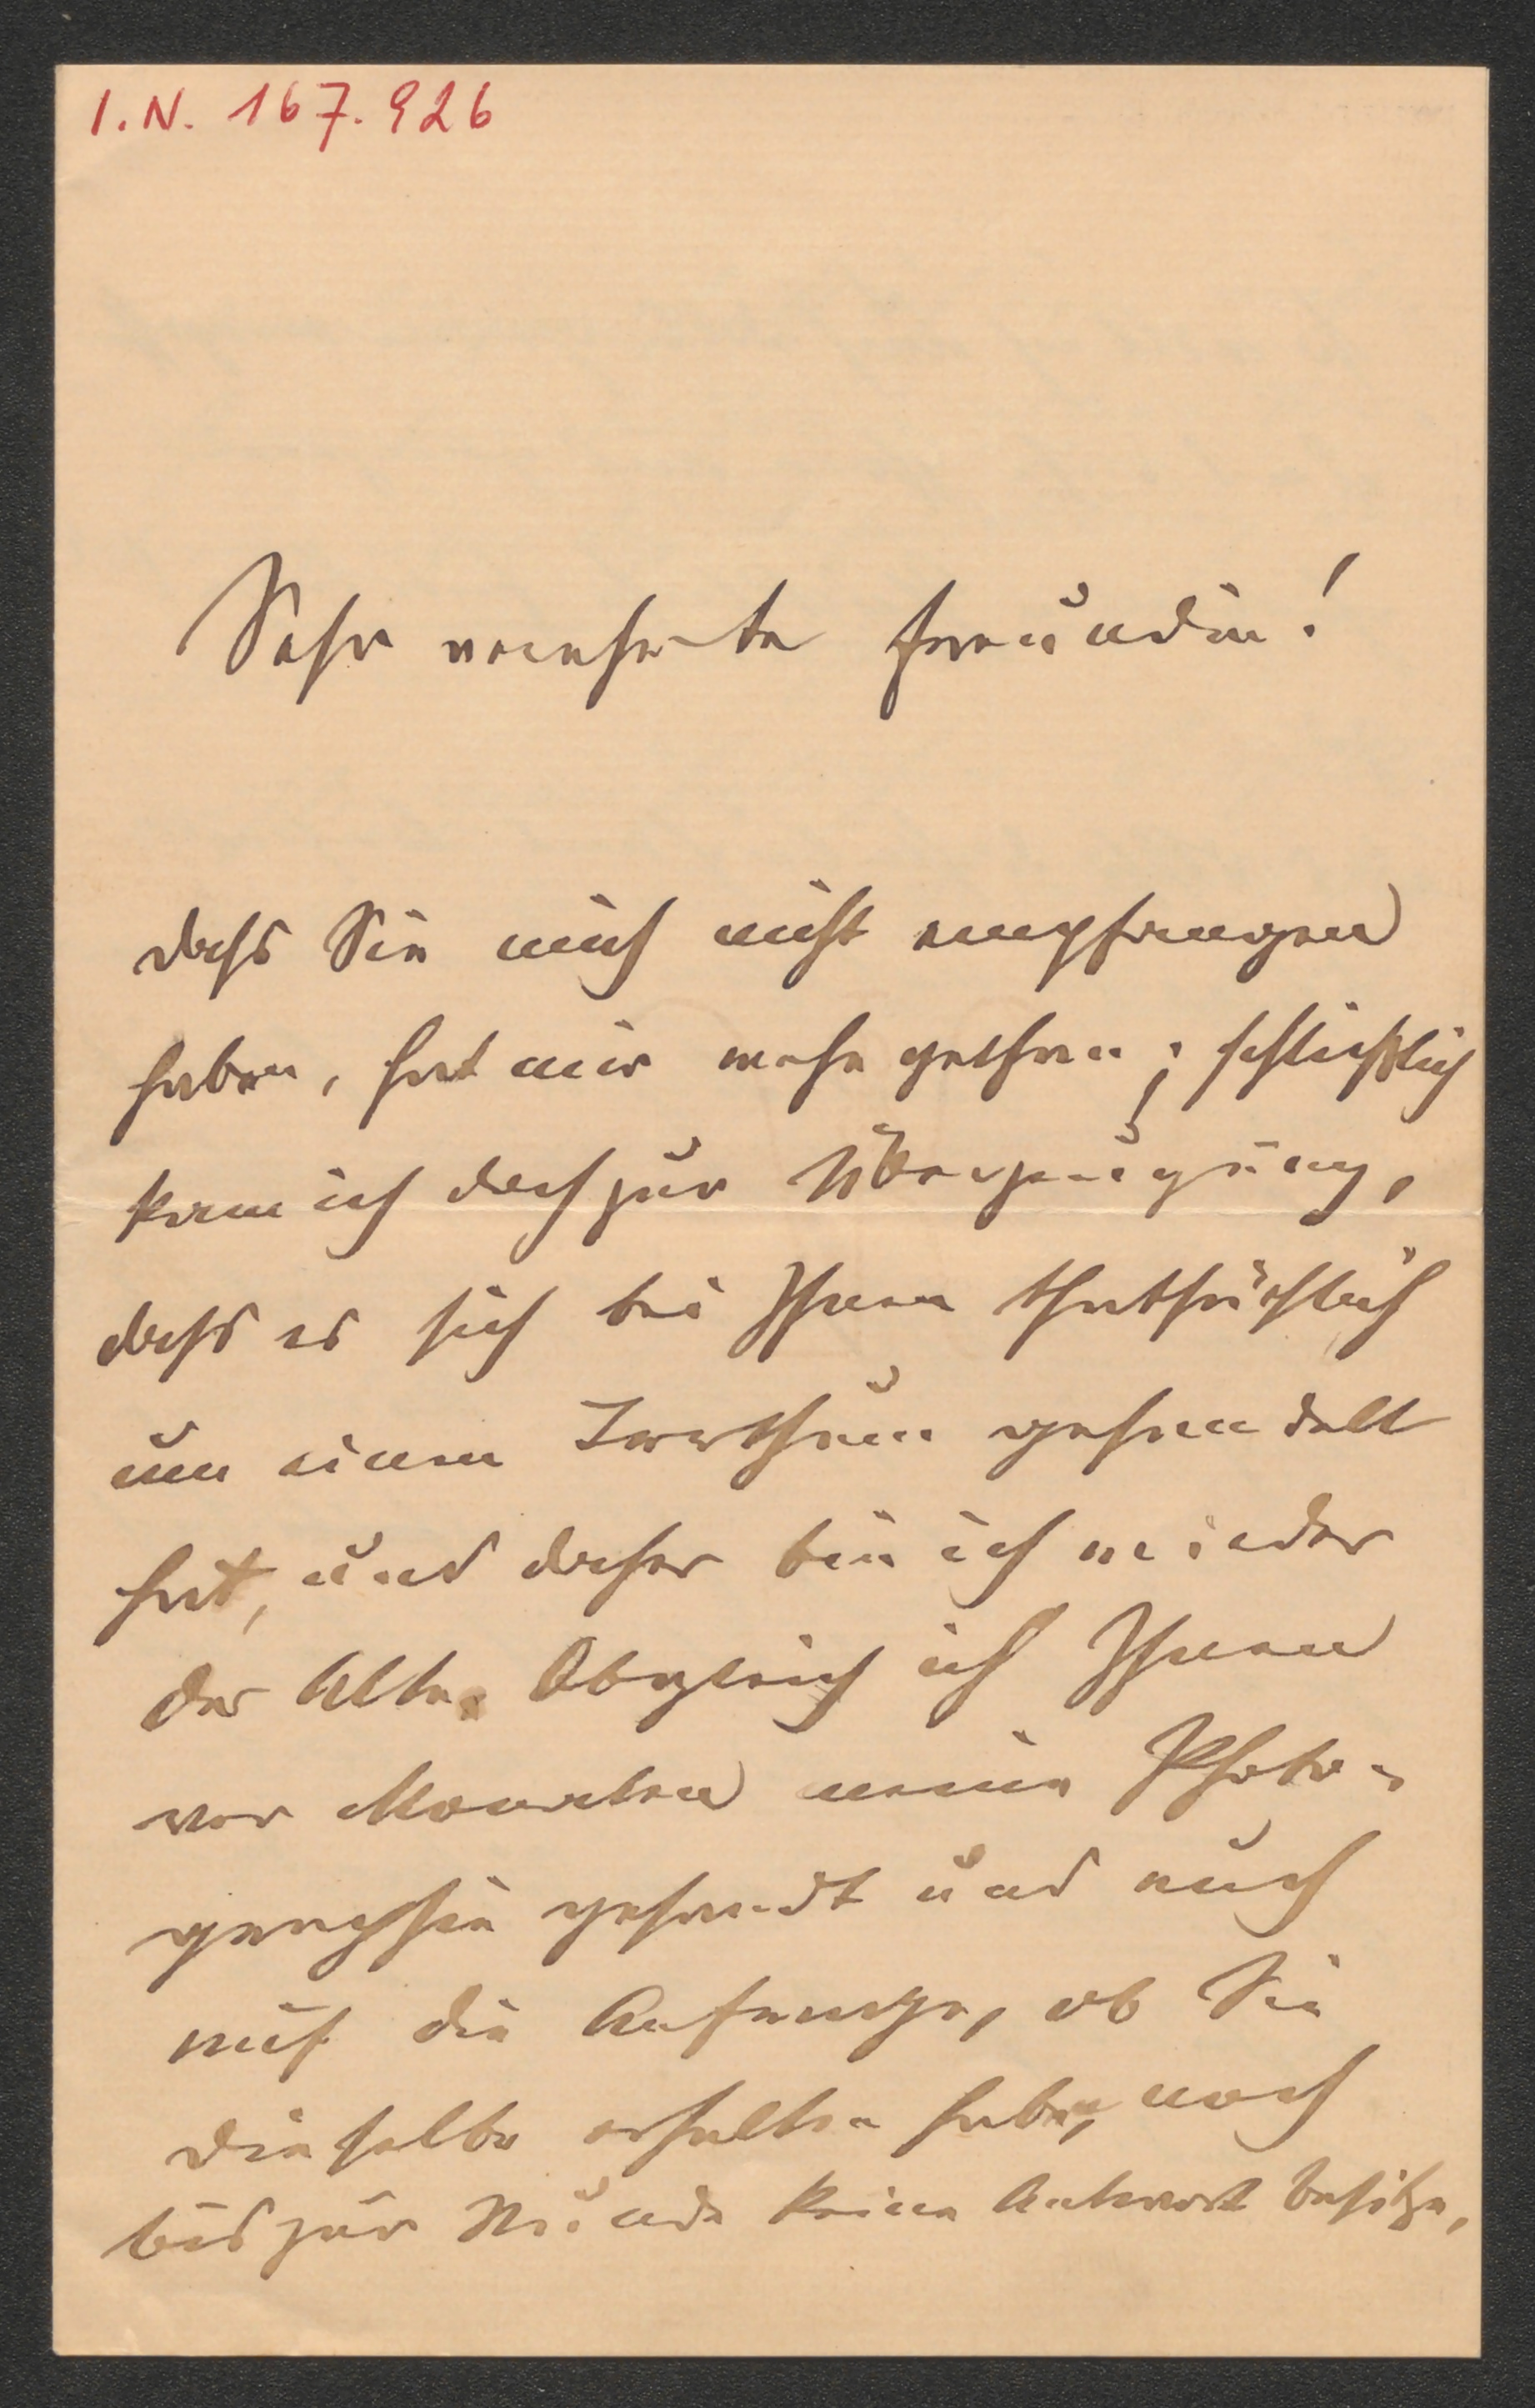 I.N. 167.926
Sehr verehrte Freundin!
dass Sie mich nicht empfangen
haben, hat mir wehe gethan; schließlich
kam ich doch zur Überzeugung,
dass es sich bei Ihnen thatsächlich
um einen Irrthum gehandelt
hat, und daher bin ich wieder
der Alte. Obgleich ich Ihnen
vor Monaten meine Photo-
graphie gesandt und auch
auf die Anfrage, ob Sie
dieselbe erhalten haben, noch
bis zur Stunde keine Antwort besitze,